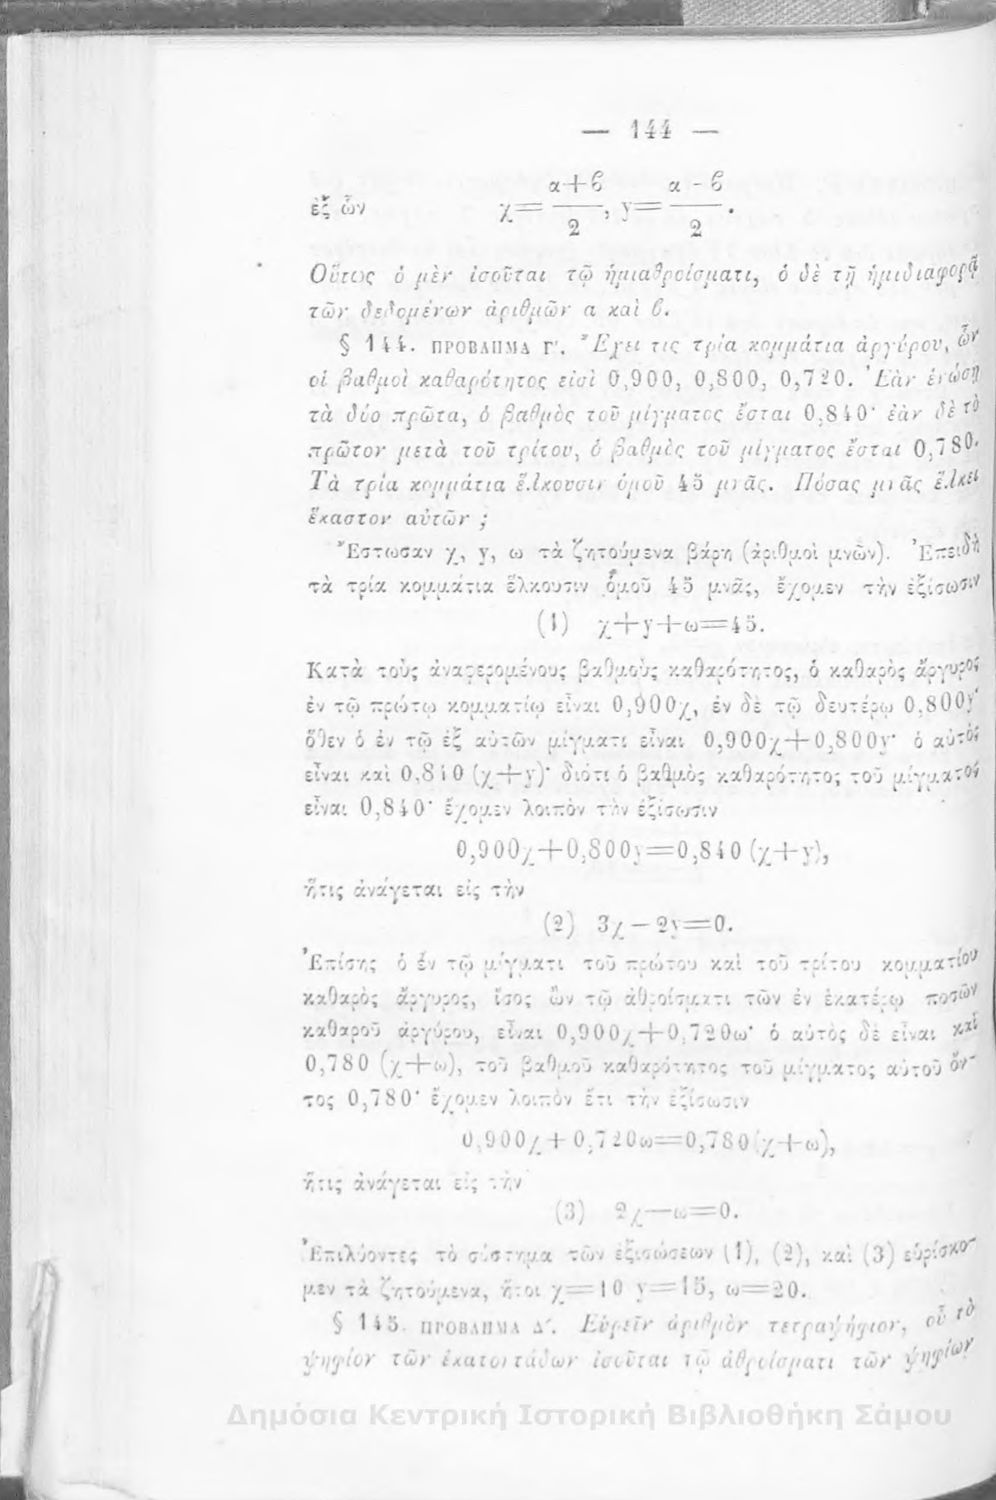 — 144 —
ἐξ ὧν χ=α+β/2, y=α-β/2.
Οὕτως ὁ μὲν ἰσοῦται τῷ ἡμιαθροίσματι, ὁ δὲ τῇ ἡμιδιαφορᾷ
τῶν δεδομένων ἀριθμῶν α καὶ β.
§ 144. ΠΡΟΒΛΗΜΑ Γ'. Ἔχει τις τρία κομμάτια ἀργύρου, ὧν
οἱ βαθμοὶ καθαρότητος εἰσὶ 0,900, 0,800, 0,720. Ἐὰν ἑνώσῃ
τὰ δύο πρῶτα, ὁ βαθμὸς τοῦ μίγματος ἔσται 0,840· ἐὰν δὲ τὸ
πρῶτον μετὰ τοῦ τρίτου, ὁ βαθμὸς τοῦ μίγματος ἔσται 0,780.
Τὰ τρία κομμάτια ἕλκουσιν ὁμοῦ 45 μνᾶς. Πόσας μνᾶς ἕλκει
ἕκαστον αὐτῶν ;
Ἔστωσαν χ, y, ω τὰ ζητούμενα βάρη (ἀριθμοὶ μνῶν). Ἐπειδὴ
τὰ τρία κομμάτια ἕλκουσιν ὁμοῦ 45 μνᾶς, ἔχομεν τὴν ἐξίσωσιν
(1) χ+y+ω=45.
Κατὰ τοὺς ἀναφερομένους βαθμοὺς καθαρότητος, ὁ καθαρὸς ἄργυρος
ἐν τῷ πρώτῳ κομματίῳ εἶναι 0,900χ, ἐν δὲ τῷ δευτέρῳ 0,800y·
ὅθεν ὁ ἐν τῷ ἐξ αὐτῶν μίγματι εἶναι 0,900χ+0,800y· ὁ αὐτὸς
εἶναι καὶ 0,840 (χ+y)· διότι ὁ βαθμὸς καθαρότητος τοῦ μίγματος
εἶναι 0,840· ἔχομεν λοιπὸν τὴν ἐξίσωσιν
0,900χ+0,800y=0,840 (χ+y),
ἥτις ἀνάγεται εἰς τὴν
(2) 3χ-2y=0.
Ἐπίσης ὁ ἐν τῷ μίγματι τοῦ πρώτου καὶ τοῦ τρίτου κομματίου
καθαρὸς ἄργυρος, ἴσος ὢν τῷ ἀθροίσματι τῶν ἐν ἑκατέρῳ ποσῶν
καθαροῦ ἀργύρου, εἶναι 0,900χ+0,720ω· ὁ αὐτὸς δὲ εἶναι καὶ
0,780 (χ+ω), τοῦ βαθμοῦ καθαρότητος τοῦ μίγματος αὐτοῦ ὄν-
τος 0,780· ἔχομεν λοιπὸν ἔτι τὴν ἐξίσωσιν
0,900χ+0,720ω=0,780(χ+ω),
ἥτις ἀνάγεται εἰς τὴν
(3) 2χ—ω=0.
Ἐπιλύοντες τὸ σύστημα τῶν ἐξισώσεων (1), (2), καὶ (3) εὑρίσκο-
μεν τὰ ζητούμενα, ἤτοι χ=10 y=15, ω=20.
§ 145. ΠΡΟΒΛΗΜΑ Δ'. Εὑρεῖν ἀριθμὸν τετραψήφιον, οὗ τὸ
ψηφίον τῶν ἑκατοντάδων ἰσοῦται τῷ ἀθροίσματι τῶν ψηφίων
Δημόσια Κεντρική Ιστορική Βιβλιοθήκη Σάμου